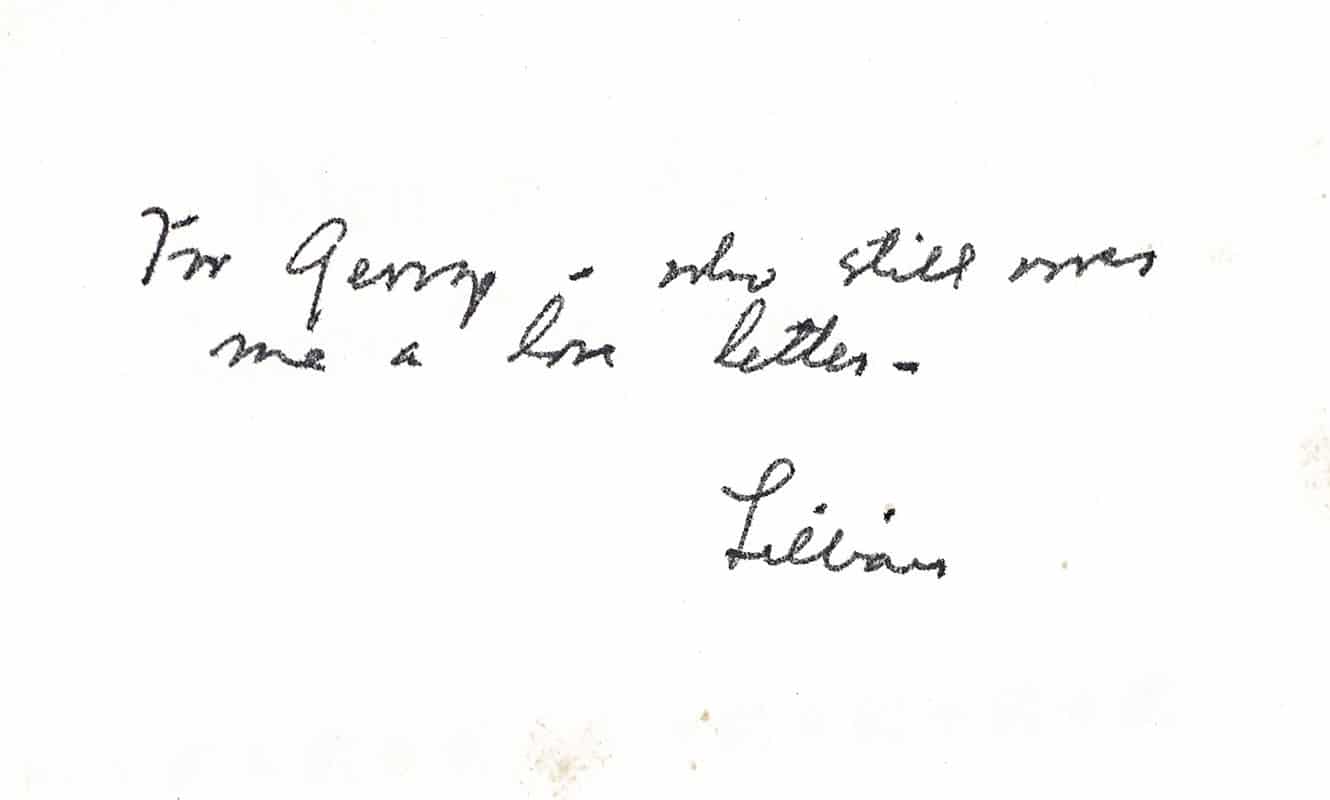 For George - who still owes
me a love letter -
Lillian